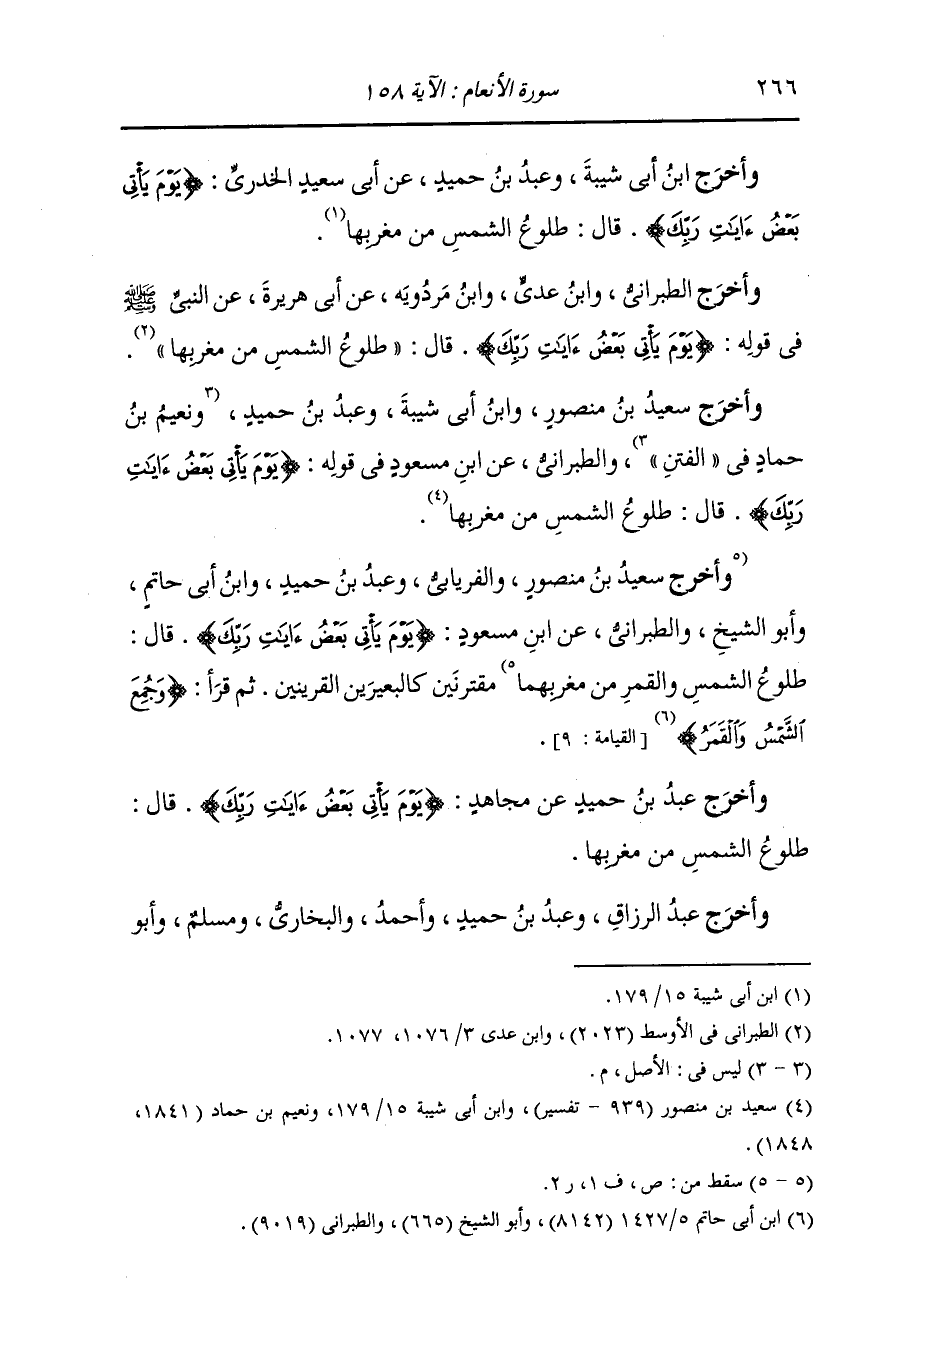 ٢٦٦ سورة الأنعام : الآية ١٥٨
وأخرَج ابنُ أبى شيبةَ ، وعبدُ بنُ حميدٍ ، عن أبى سعيدٍ الخدرىِّ : ﴿يَوْمَ يَأْتِى
بَعْضُ ءَايَٰتِ رَبِّكَ﴾ . قال : طلوعُ الشمسِ من مغربِها(١) .
وأخرَج الطبرانىُّ ، وابنُ عدىٍّ ، وابنُ مَردُويَه ، عن أبى هريرةَ ، عن النبىِّ ﷺ
فى قولِه : ﴿يَوْمَ يَأْتِى بَعْضُ ءَايَٰتِ رَبِّكَ﴾ . قال : « طلوعُ الشمسِ من مغربِها »(٢) .
وأخرَج سعيدُ بنُ منصورٍ ، وابنُ أبى شيبةَ ، وعبدُ بنُ حميدٍ ، (٣ونعيمُ بنُ
حمادٍ فى « الفتنِ »٣) ، والطبرانىُّ ، عن ابنِ مسعودٍ فى قولِه : ﴿يَوْمَ يَأْتِى بَعْضُ ءَايَٰتِ
رَبِّكَ﴾ . قال : طلوعُ الشمسِ من مغربِها(٤) .
(٥وأخرج سعيدُ بنُ منصورٍ ، والفريابىُّ ، وعبدُ بنُ حميدٍ ، وابنُ أبى حاتمٍ ،
وأبو الشيخِ ، والطبرانىُّ ، عن ابنِ مسعودٍ : ﴿يَوْمَ يَأْتِى بَعْضُ ءَايَٰتِ رَبِّكَ﴾ . قال :
طلوعُ الشمسِ والقمرِ من مغربِهما٥) مقترنَين كالبعيرَين القرينين . ثم قرَأ : ﴿وَجُمِعَ
ٱلشَّمْسُ وَٱلْقَمَرُ﴾(٦) [القيامة : ٩] .
وأخرَج عبدُ بنُ حميدٍ عن مجاهدٍ : ﴿يَوْمَ يَأْتِى بَعْضُ ءَايَٰتِ رَبِّكَ﴾ . قال :
طلوعُ الشمسِ من مغربِها .
وأخرَج عبدُ الرزاقِ ، وعبدُ بنُ حميدٍ ، وأحمدُ ، والبخارىُّ ، ومسلمٌ ، وأبو
(١) ابن أبى شيبة ١٥/ ١٧٩.
(٢) الطبرانى فى الأوسط (٢٠٢٣) ، وابن عدى ٣/ ١٠٧٦، ١٠٧٧.
(٣ - ٣) ليس فى : الأصل ، م .
(٤) سعيد بن منصور (٩٣٩ - تفسير) ، وابن أبى شيبة ١٥/ ١٧٩، ونعيم بن حماد (١٨٤١،
١٨٤٨) .
(٥ - ٥) سقط من : ص ، ف ١، ر ٢.
(٦) ابن أبى حاتم ٥/ ١٤٢٧ (٨١٤٢) ، وأبو الشيخ (٦٦٥) ، والطبرانى (٩٠١٩) .